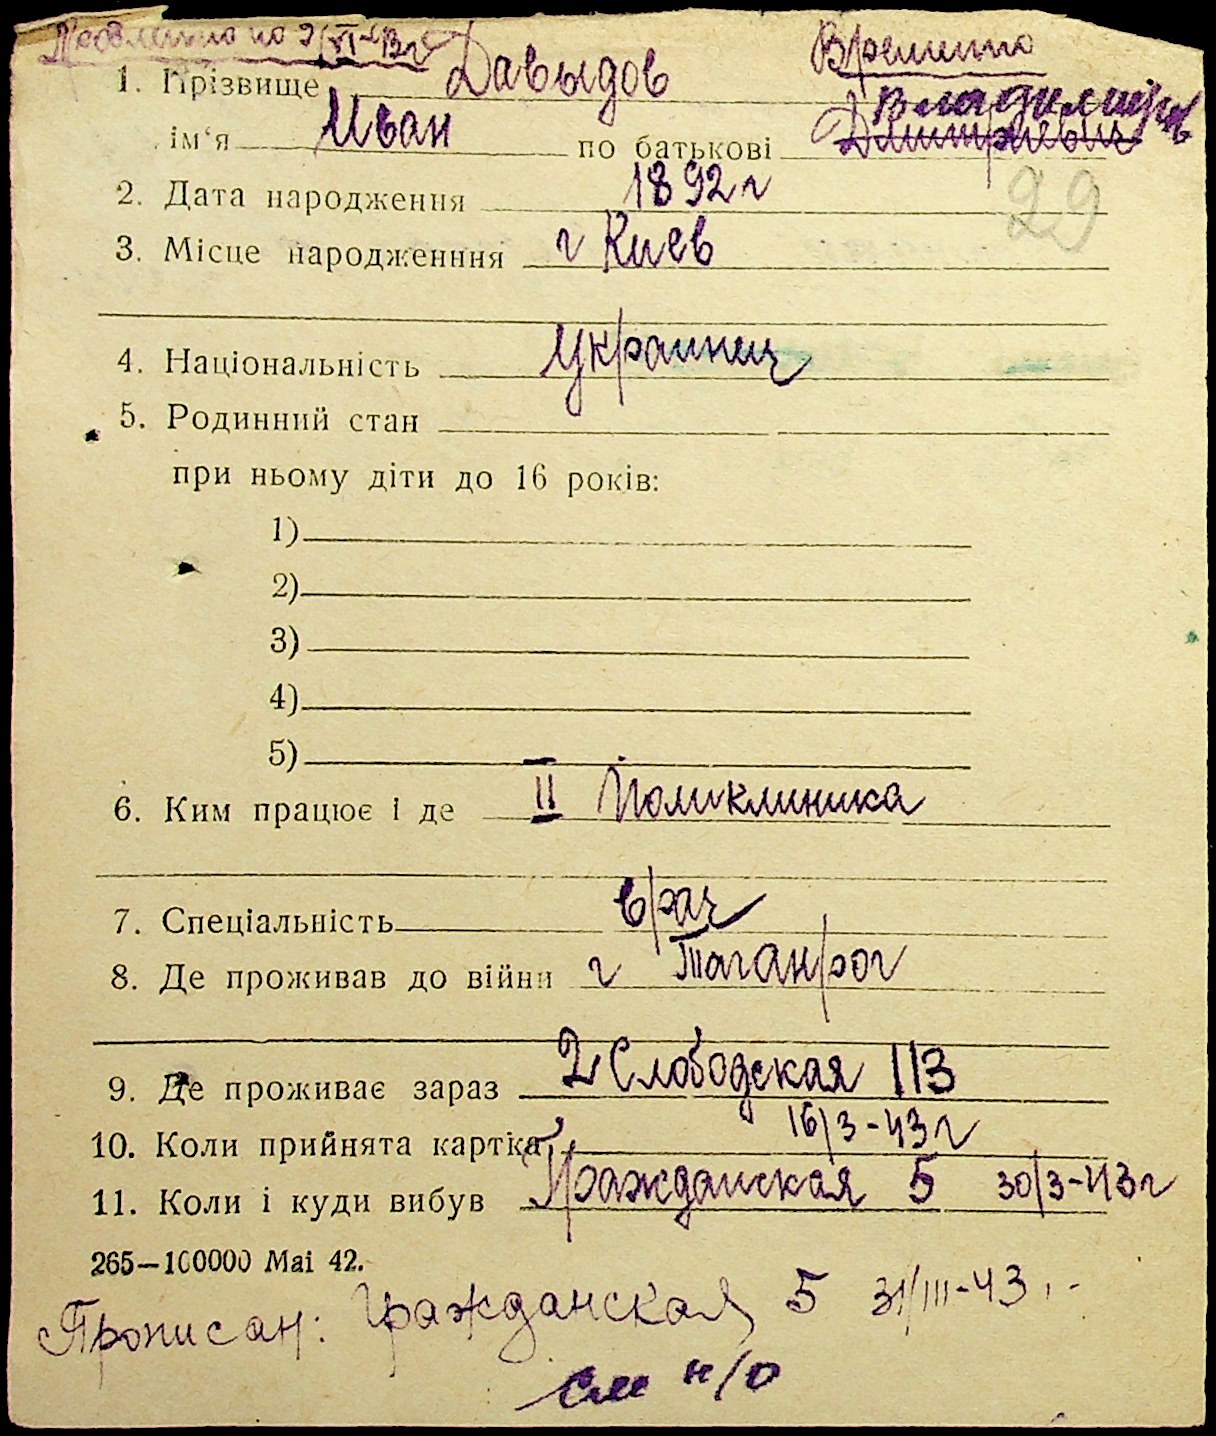 Продлено по 9/VI-43г Временно
1. Прізвище Давыдов
Владимиров
ім‘я Иван по батькові Дмитриевич
2. Дата народження 1892 г 29
3. Місце народженння г Киев
4. Національність Украинец
5. Родинний стан
при ньому діти до 16 років:
1)
2)
3)
4)
5)
6. Ким працює і де II Поликлиника
7. Спеціальність врач
8. Де проживав до війни г Таганрог
9. Де проживає зараз 2 Слободская 113
10. Коли прийнята картка 16/3-43 г
11. Коли і куди вибув Гражданская 5 30/3-43 г
265—100000 Mai 42.
Прописан: Гражданская 5 31/III-43.
См н/о